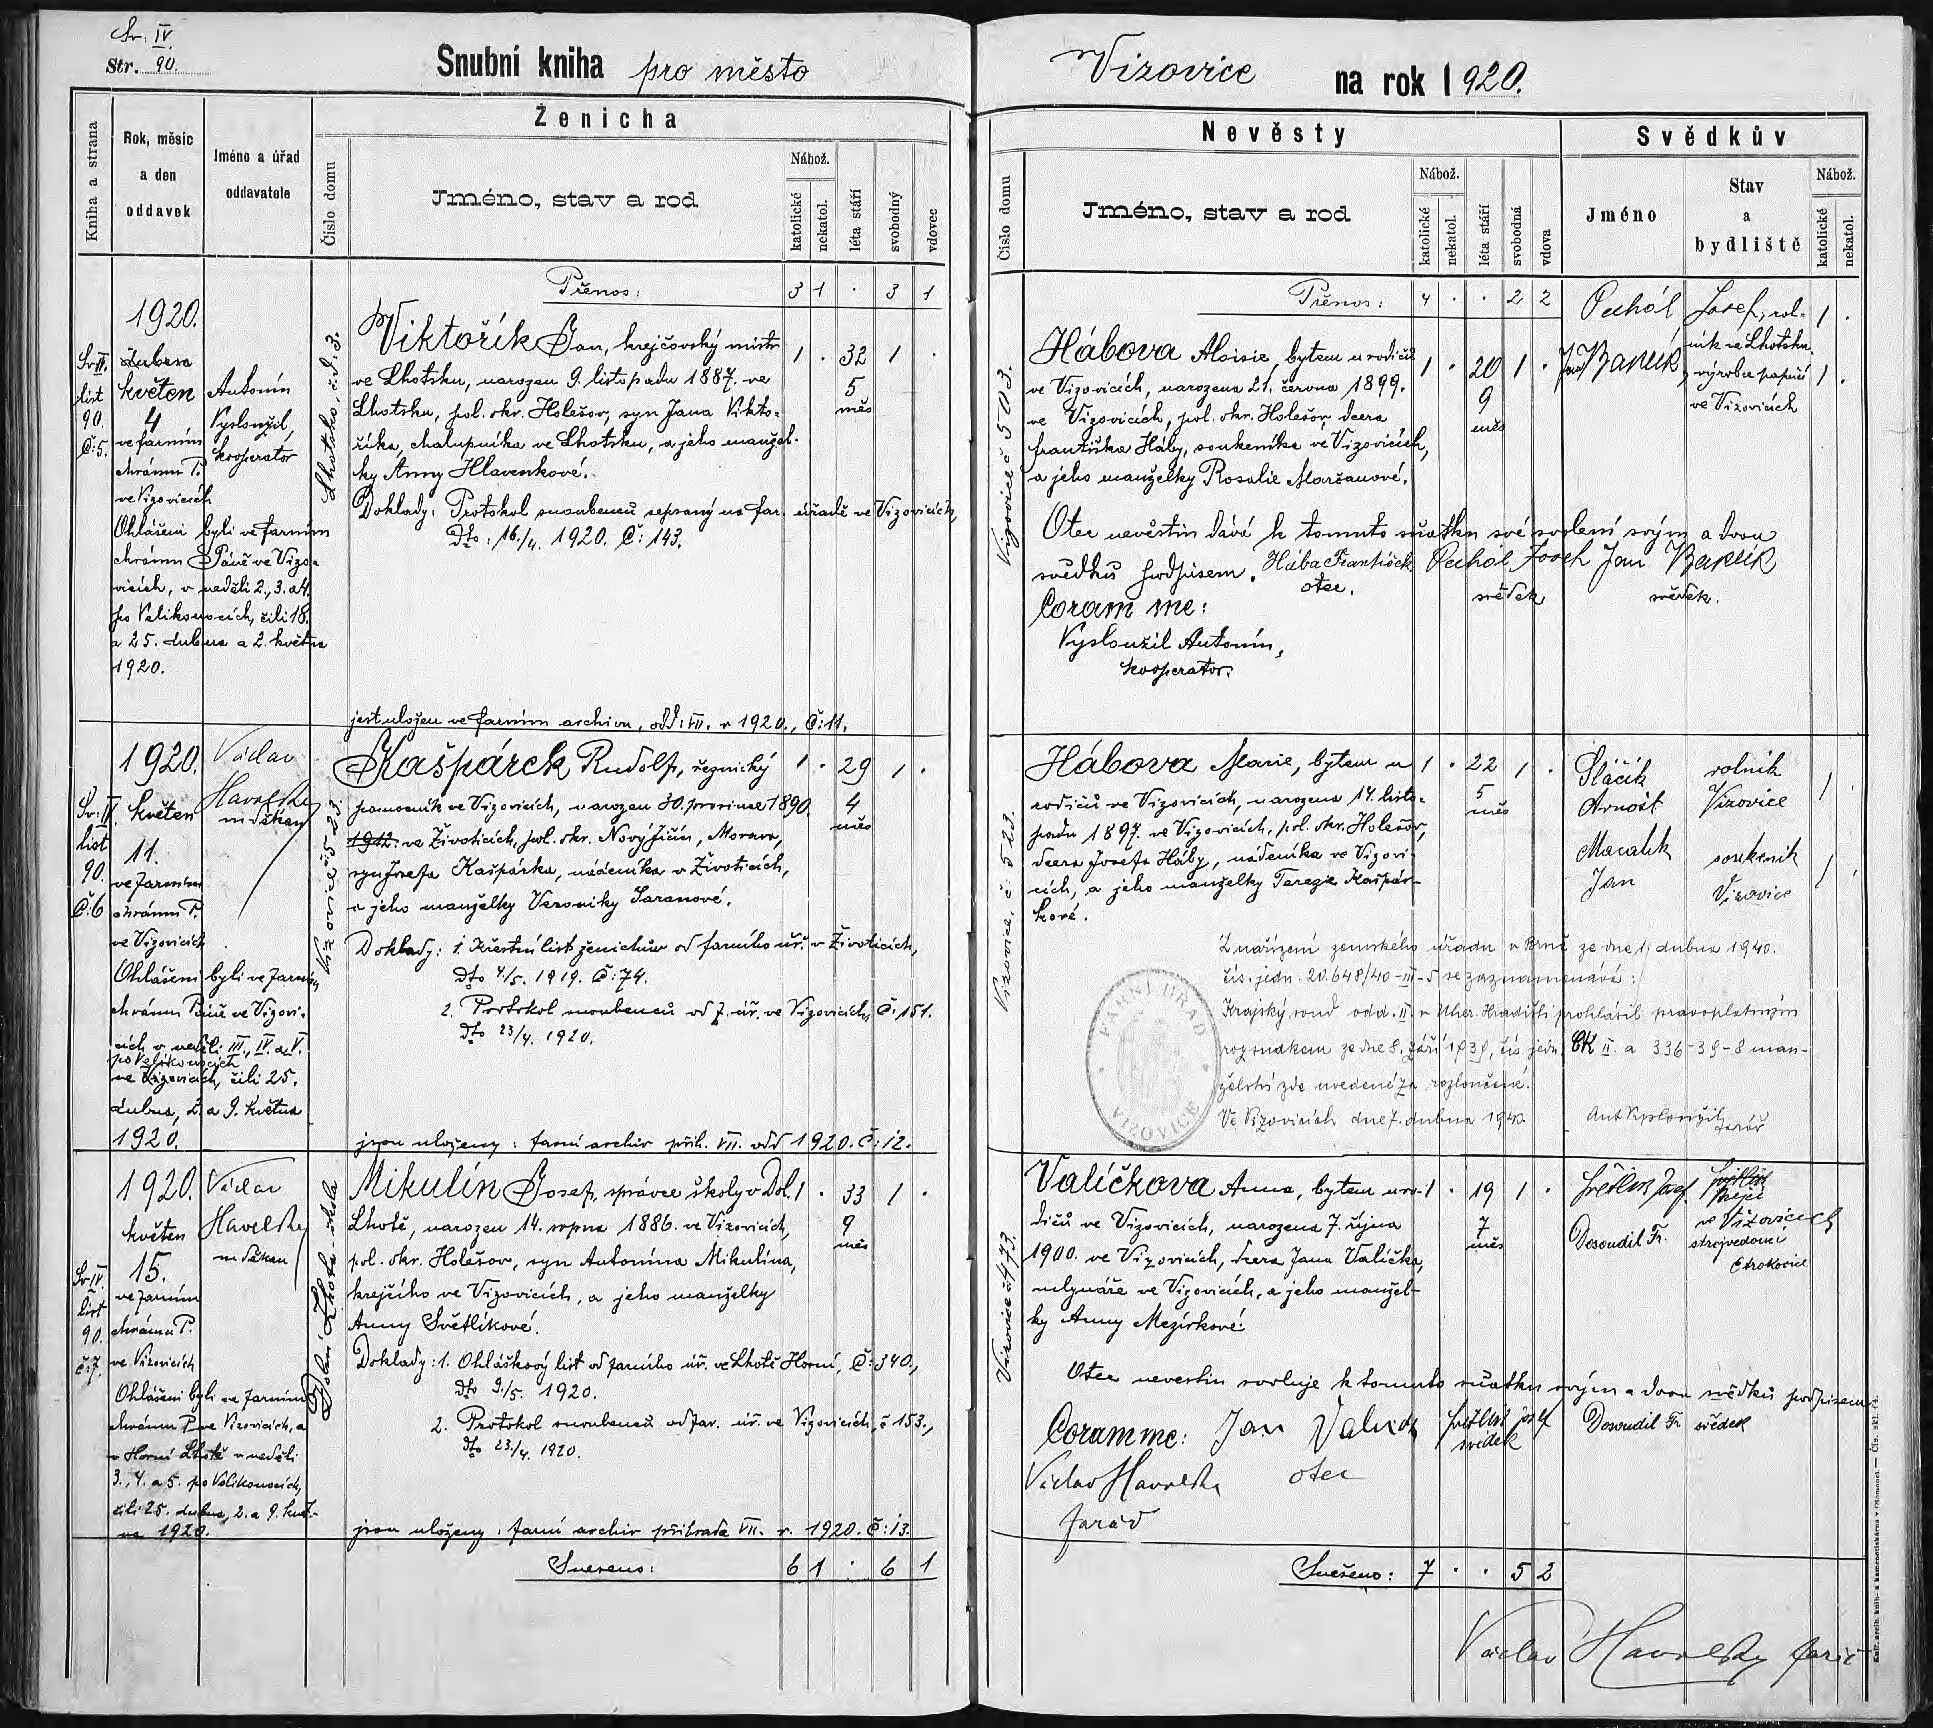 Sv. IV.
Str. 90.
Snubní kniha pro město
Vizovice na rok 1920.
Kniha a strana
Rok, měsíc
a den
oddavek
Jméno a úřad
oddavatele
Číslo domu
Ženicha
Jméno, stav a rod
Nábož.
katolické
nekatol.
léta stáří
svobodný
vdovec
Přenos: 3 1 . 3 1
1920.
Sv. IV.
list
90.
Č: 5.
dubna
květen
4
ve farním
chrámu P.
ve Vizovicích
Ohlášeni byli ve farním
chrámu Páně ve Vizo-
vicích, v neděli 2., 3. a 4.
po Velikonocích, čili 18.
a 25. dubna a 2. května
1920.
Antonín
Vysloužil,
kooperátor
Lhotsko, č.d. 3.
Viktořík Jan, krejčovský mistr 1 . 32 1 .
ve Lhotsku, narozen 9. listopadu 1887. ve 5
Lhotsku, pol. okr. Holešov, syn Jana Vikto- měs
říka, chalupníka ve Lhotsku, a jeho manžel-
ky Anny Hlavenkové.
Doklady: Protokol snoubenců sepsaný na far. úřadě ve Vizovicích,
dto: 16./4. 1920. Č: 143.
jest uložen ve farním archivu, odd: VII. r 1920., Č: 11.
1920.
Sv: IV.
list
90.
Č: 6
květen
11.
ve farním
chrámu P.
ve Vizovicích
Ohlášeni byli ve farním
chrámu Páně ve Vizovi-
cích v neděli III., IV. a V.
po Velikonocích
ve Vizovicích, čili 25.
dubna, 2. a 9. května
1920.
Václav
Havelka
m děkan
Vizovice č 523.
Kašpárek Rudolf, řeznický 1 . 29 1 .
pomocník ve Vizovicích, narozen 30. prosince 1890. 4
1912. ve Životicích, pol. okr. Nový Jičín, Morava, měs
syn Josefa Kašpárka, nádeníka v Životicích,
a jeho manželky Veroniky Saranové.
Doklady: 1. Křestní list ženichův od farního úř. v Životicích,
dto 4/5. 1919. Č: 74.
2. Protokol snoubenců od f. úř. ve Vizovicích, Č: 151.
dto 23/4. 1920.
jsou uloženy: farní archiv přih. VII. odd 1920. Č: 12.
1920.
Sv. IV.
list
90.
č: 7.
květen
15.
ve farním
chrámu P.
ve Vizovicích
Ohlášeni byli ve farním
chrámu P. ve Vizovicích, a
v Horní Lhotě v neděli
3., 4. a 5. po Velikonocích,
čili 25. dubna, 2. a 9. květ-
na 1920.
Václav
Havelka
m děkan
Dolní Lhota škola
Mikulín Josef, správce školy v Dol. 1 . 33 1 .
Lhotě, narozen 14. srpna 1886. ve Vizovicích, 9
pol. okr. Holešov, syn Antonína Mikulína, měs
krejčího ve Vizovicích, a jeho manželky
Anny Světlíkové.
Doklady: 1. Ohláškový list od farního úř. ve Lhotě Horní, Č: 340.,
dto 9./5. 1920.
2. Protokol snoubenců od far. úř. ve Vizovicích, č 153.,
dto 23/4. 1920.
jsou uloženy: farní archiv přihrada VII. r. 1920. Č: 13.
Sneseno: 6 1 . 6 1
Nevěsty
Svědkův
Číslo domu
Jméno, stav a rod
Nábož.
katolické
nekatol.
léta stáří
svobodná
vdova
Jméno
Stav
a
bydliště
Nábož.
katolické
nekatol.
Přenos: 4 . . 2 2
Vizovice č 503.
Hábova Aloisie, bytem u rodičů 1 . 20 1 .
ve Vizovicích, narozena 21. června 1899. 9
ve Vizovicích, pol. okr. Holešov, dcera měs
Františka Háby, soukeníka ve Vizovicích,
a jeho manželky Rosalie Maršanové.
Puchól Josef, rol- 1 .
ník ve Lhotsku,
Jan Barčík, výrobce papučí 1 .
ve Vizovicích
Otec nevěstin dává k tomuto sňatku své svolení svým a dvou
svědků podpisem. Hába František Puchól Josef Jan Barčík
otec. svědek svědek.
Coram me:
Vysloužil Antonín,
kooperátor.
Vizovice, č: 523.
Hábova Marie, bytem u 1 . 22 1 .
rodičů ve Vizovicích, narozena 14. listo- 5
padu 1897. ve Vizovicích, pol. okr. Holešov, měs
dcera Josefa Háby, nádeníka ve Vizovi-
cích, a jeho manželky Terezie Kašpár-
kové.
Sláčík rolník 1
Arnošt Vizovice
Macalík soukeník 1 .
Jan Vizovice
Z nařízení zemského úřadu v Brně ze dne 1. dubna 1940.
čís. jedn. 20.648/40-III-5 se zaznamenává:
Krajský soud odd. II. v Uher. Hradišti prohlásil pravoplatným
rozsudkem ze dne 8. září 1939, čís. jedn. CK II. a 336-39-8 man-
želství zde uvedené za rozloučené.
Ve Vizovicích dne 7. dubna 1940. Ant Vysloužil
farář
FARNÍ ÚŘAD
VIZOVICE
Vizovice č 473.
Valíčkova Anna, bytem u ro- 1 . 19 1 .
dičů ve Vizovicích, narozena 7. října 7
1900. ve Vizovicích, dcera Jana Valíčka, měs
mlynáře ve Vizovicích, a jeho manžel-
ky Anny Mezírkové.
Světlík Josef krejčí
ve Vizovicích
Dosoudil Fr. strojvedoucí
Otrokovice
Otec nevěstin svoluje k tomuto sňatku svým a dvou svědků podpisem
Coram me: Jan Valíček Světlík Josef Dosoudil Fr. svědek
otec svědek
Václav Havelka
farář
Snešeno: 7 . . 5 2
Václav Havelka farář